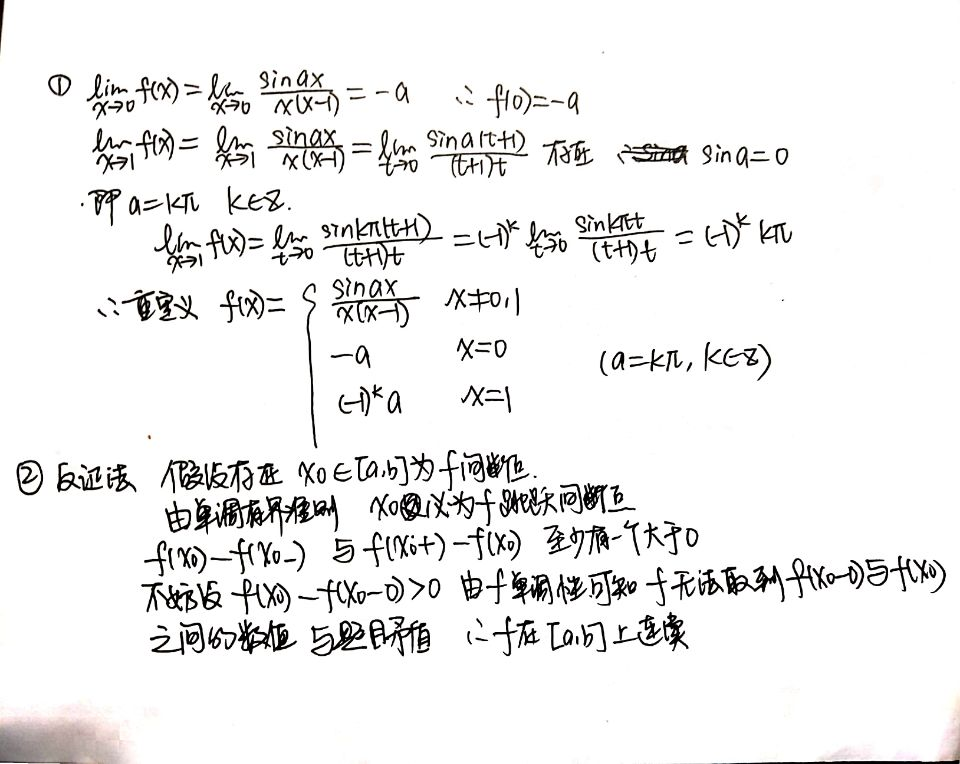 ① lim_{x→0} f(x) = lim_{x→0} sin ax / x(x-1) = -a ∴ f(0) = -a
lim_{x→1} f(x) = lim_{x→1} sin ax / x(x-1) = lim_{t→0} sin a(t+1) / (t+1)t 存在 ∴ sin a = 0
即 a = kπ k∈Z.
lim_{x→1} f(x) = lim_{t→0} sin kπ(t+1) / (t+1)t = (-1)^k lim_{t→0} sin kπt / (t+1)t = (-1)^k kπ
∴ 重定义 f(x) = { sin ax / x(x-1) x≠0,1
-a x=0 (a=kπ, k∈Z)
(-1)^k a x=1
② 反证法 假设存在 x0∈[a,b]为f间断点.
由单调有界准则 x0必为f跳跃间断点
f(x0)-f(x0-) 与 f(x0+)-f(x0) 至少有一个大于0
不妨设 f(x0)-f(x0-0)>0 由f单调性可知 f无法取到f(x0-0)与f(x0)
之间的数值 与题目矛盾 ∴ f在[a,b]上连续